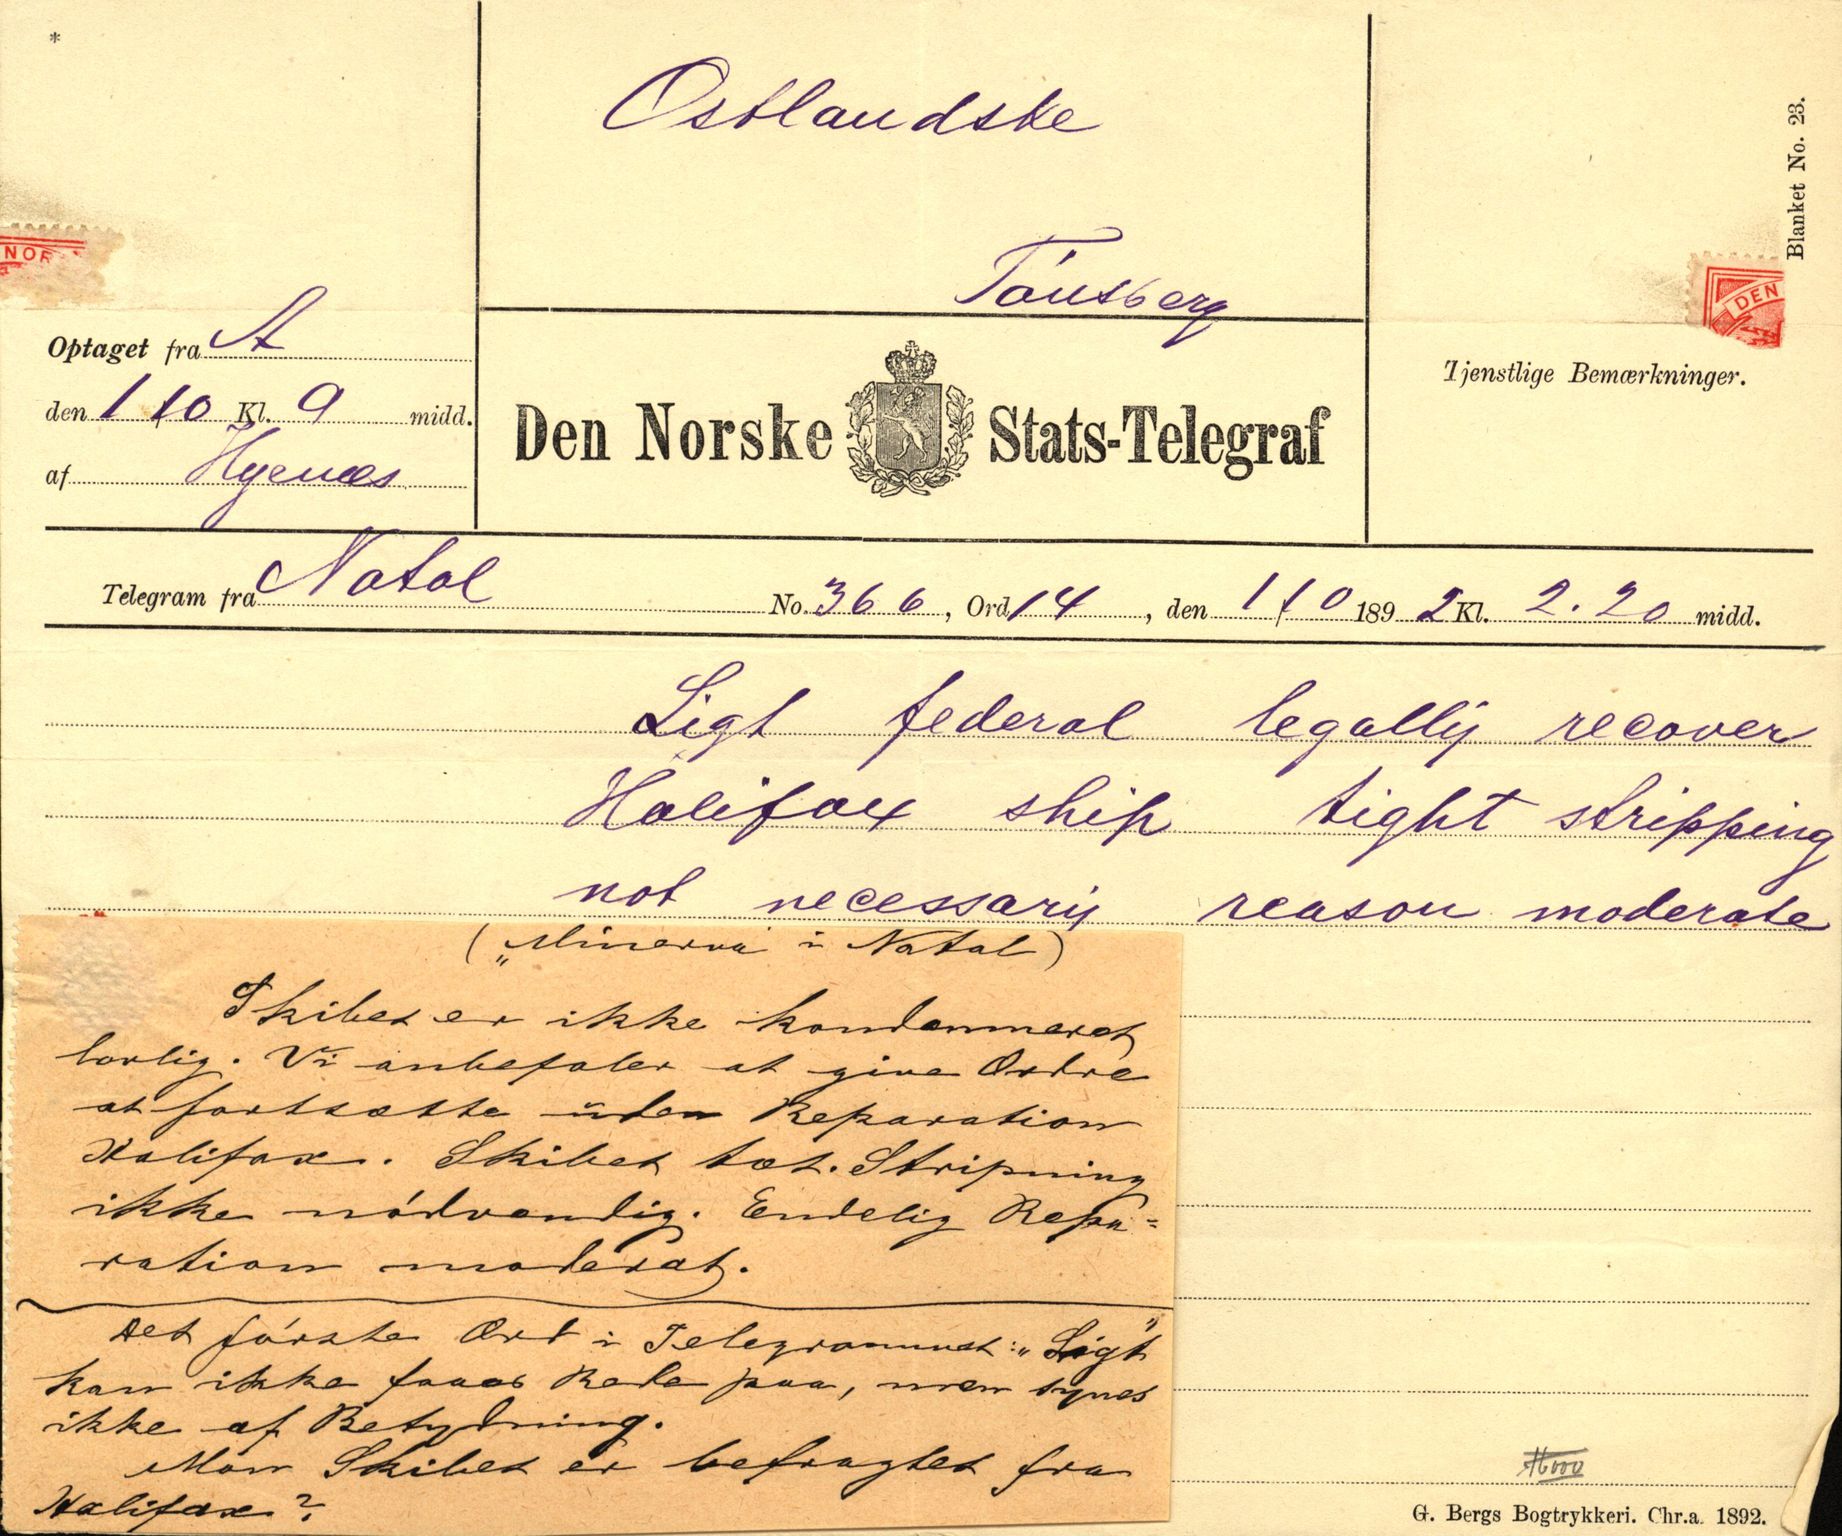 *
Ostlandske
Blanket No. 23.
NOR
DEN
Tónsberg
Optaget fra A
den 1/10 Kl. 9 midd.
af Hyenæs
Den Norske Stats-Telegraf
Tjenstlige Bemærkninger.
Telegram fra Natal No. 366, Ord 14, den 1/10 1892 Kl. 2.20 midd.
Ligt federal legally recover
Halifax ship tight stripping
not necessary reason moderate
(„Minerva i Natal)
Skibet er ikke kondemneret
lovlig. Vi anbefaler at give Ordre
at fortsætte uden Reparation
Halifax. Skibet tæt. Stripning
ikke nódvendig. Endelig Repa=
ration moderat.
Det fórste Ord i Telegrammet: „Ligt"
kan ikke faaes Rede paa, men synes
ikke af Betydning.
Mon Skibet er befragtet fra
Halifax?
G. Bergs Bogtrykkeri. Chr.a. 1892.